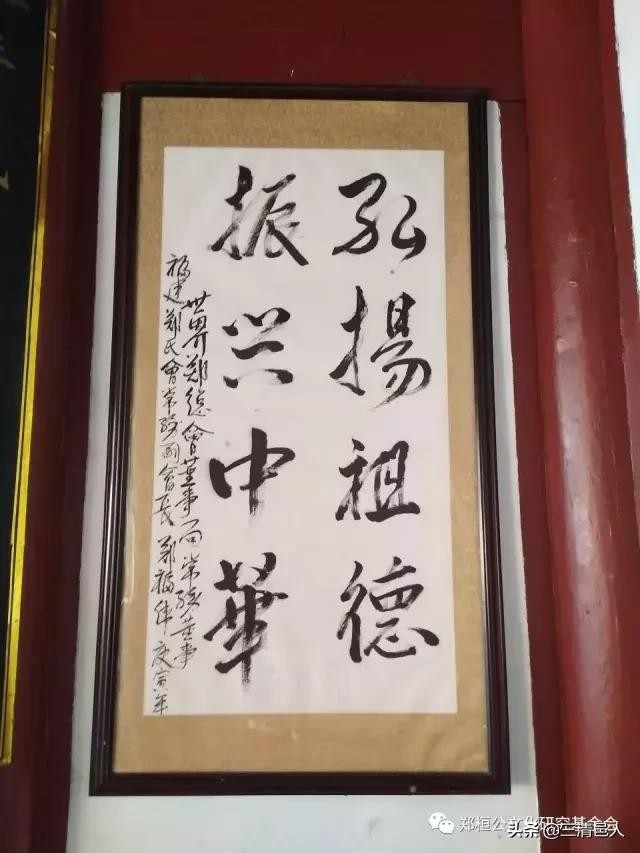 弘揚祖德
振兴中華
世界鄭總會董事局常務董事
福建鄭氏會常務副會長 鄭福伟 庚寅年
郑桓公文化研究基金会
头条@三清巨人